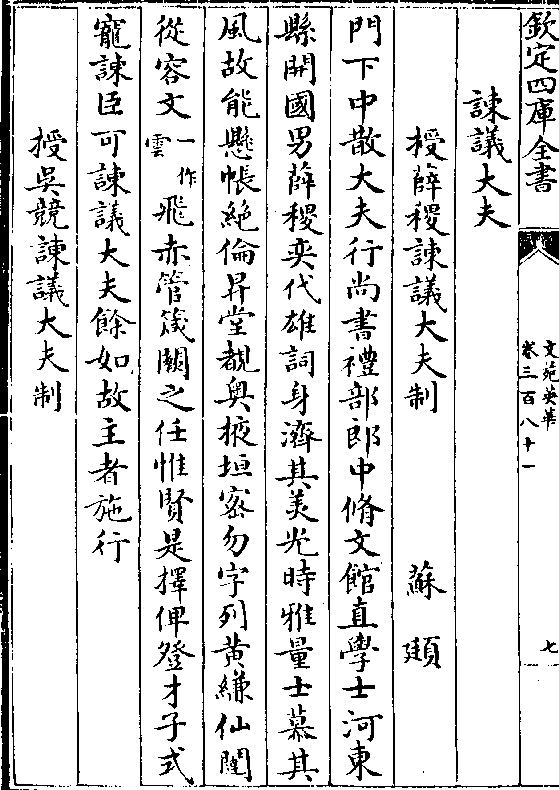 欽定四庫全書
文苑英華
卷三百八十一
七
諫議大夫
授薛稷諫議大夫制 蘇頲
門下中散大夫行尚書禮部郎中脩文館直學士河東
縣開國男薛稷奕代雄詞身濟其美光時雅量士慕其
風故能懸帳絶倫昇堂覩奥掖垣密勿字列黄縑仙闈
從容文一作雲飛赤管箴闕之任惟賢是擇俾登才子式
寵諫臣可諫議大夫餘如故主者施行
授吳競諫議大夫制